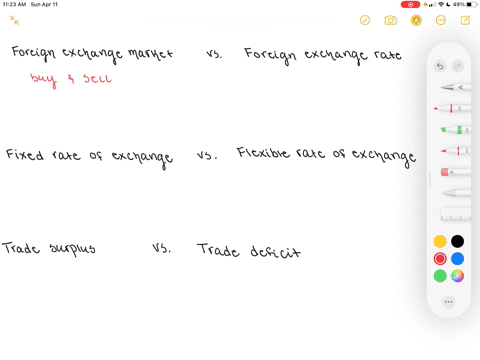 11:23 AM Sun Apr 11
49%
Foreign exchange market vs. Foreign exchange rate
buy & sell
Fixed rate of exchange vs. Flexible rate of exchange
Trade surplus vs. Trade deficit